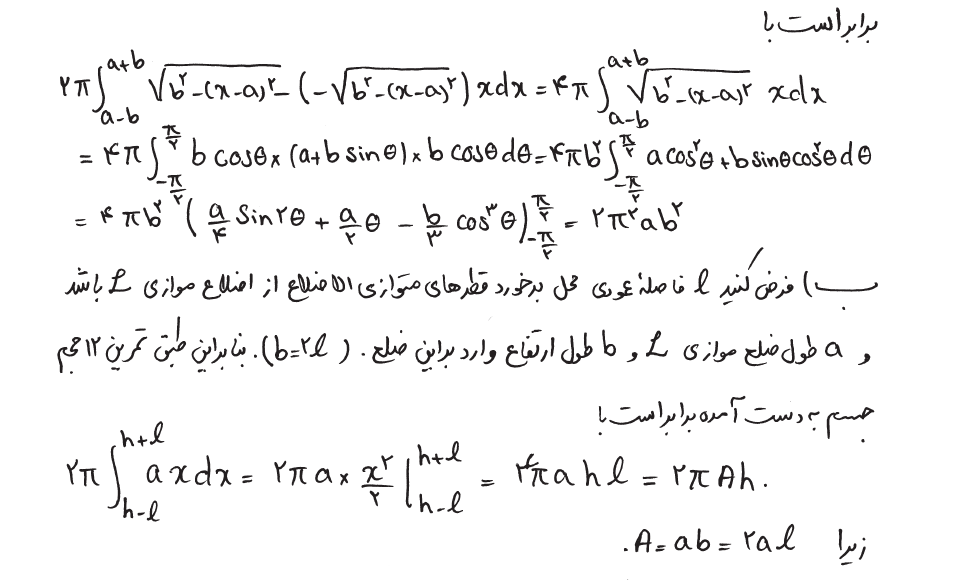 برابر است با
۲π∫_{a-b}^{a+b} √(b^۲-(x-a)^۲) - (-√(b^۲-(x-a)^۲)) x dx = ۴π ∫_{a-b}^{a+b} √(b^۲-(x-a)^۲) x dx
= ۴π ∫_{-π/۲}^{π/۲} b cosθ × (a+b sinθ) × b cosθ dθ = ۴πb^۲ ∫_{-π/۲}^{π/۲} a cos^۲θ + b sinθ cos^۲θ dθ
= ۴πb^۲ ( a/۴ sin۲θ + a/۲ θ - b/۳ cos^۳θ )_{-π/۲}^{π/۲} = ۲π^۲ab^۲
ب) فرض کنید l فاصلهٔ عمودی محل برخورد قطرهای متوازی الاضلاع از اضلاع موازی L باشد
و a طول ضلع موازی L و b طول ارتفاع وارد براین ضلع. (b=۲l). بنابراین طبق تمرین ۱۲ حجم
جسم به دست آمده برابر است با
۲π ∫_{h-l}^{h+l} a x dx = ۲πa × x^۲/۲ |_{h-l}^{h+l} = ۴πahl = ۲πAh.
زیرا A = ab = ۲al.